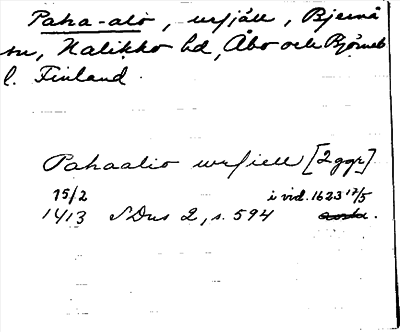 Paha-alo, urfjäll, Bjernå
sn, Halikko hd, Åbo och Björneb
l. Finland.
Pahaalio urfiell [2 ggr]
15/2 i vid. 1623 17/5
1413 SDns 2, s. 594